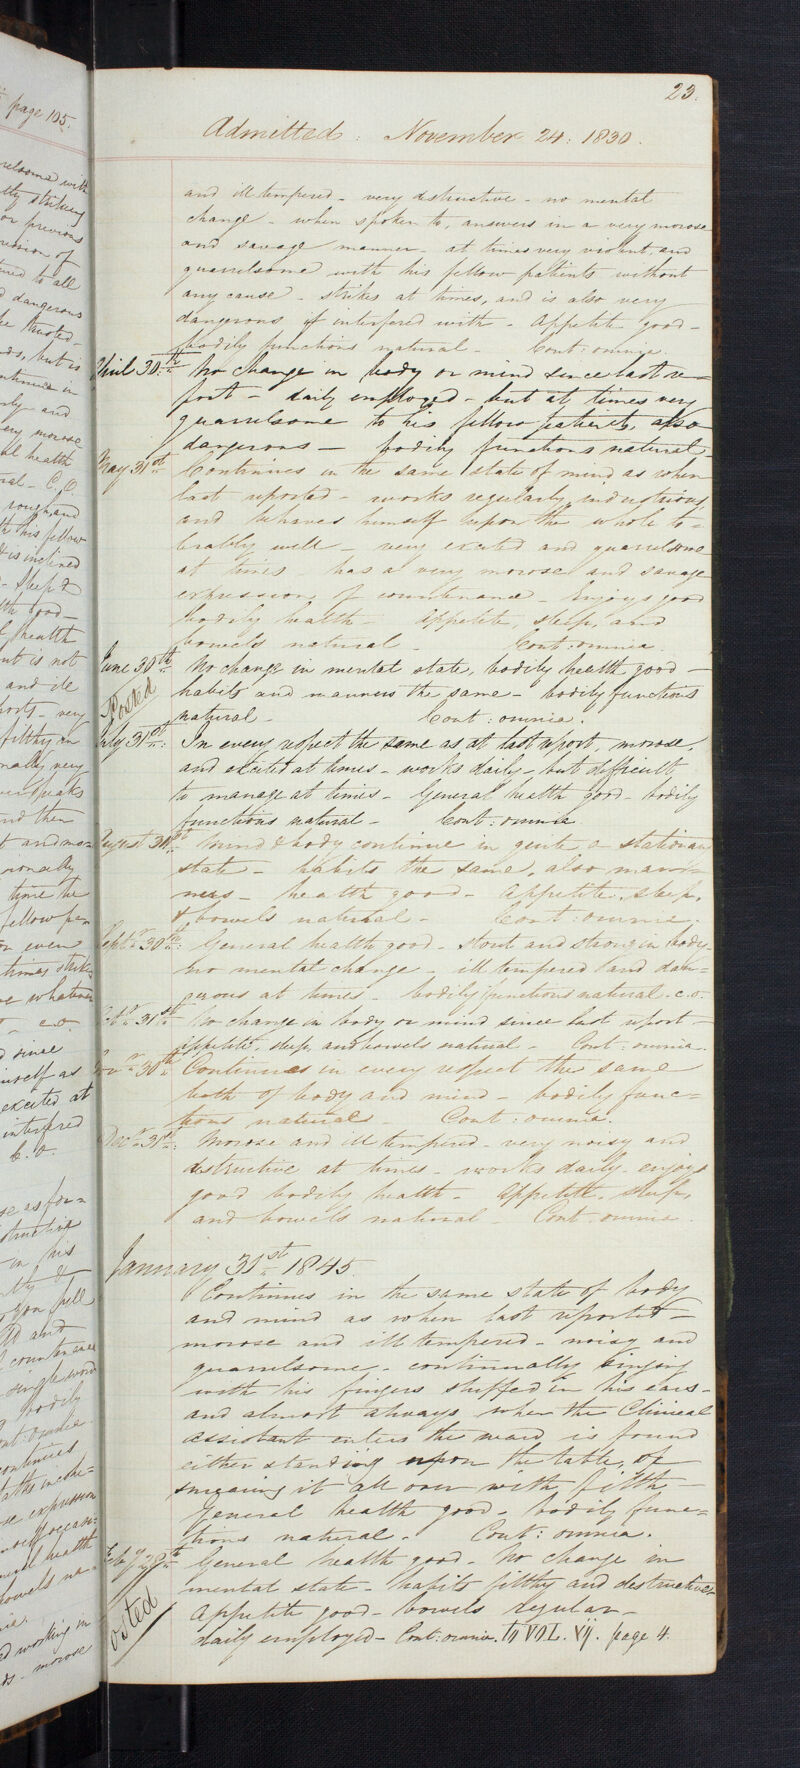 page 105.
23.
Admitted: November 24: 1830.
and ill tempered - very destructive - no mental
change - when spoken to, answers in a very morose
and savage manner - at times very violent, and
quarrelsome with his fellow patients without
any cause - strikes at times, and is also very
dangerous if interfered with - Appetite good -
bodily functions natural - Cont: omnia.
April 30th: No change in body or mind since last re=
port - daily employed - but at times very
quarrelsome to his fellow patients, also
dangerous - bodily functions natural -
May 31st Continues in the same state of mind as when
last reported - works regularly, industrious,
and behaves himself upon the whole to=
lerably well - very excited and quarrelsome
at times - has a very morose and savage
expression of countenance - Enjoys good
bodily health - Appetite, sleep, and
bowels natural - Cont: omnia.
June 30th: No change in mental state, bodily health good -
Posted
habits and manners the same - bodily functions
natural - Cont: omnia.
July 31st: In every respect the same as at last report, morose,
and excited at times - works daily - but difficult
to manage at times - General health good - bodily
functions natural - Cont: omnia.
August 31st: Mind & body continue in quite a stationary
state - habits the same, also man=
ners - health good - Appetite, sleep,
& bowels natural - Cont: omnia.
Septr 30th: General health good - stout and strong in body -
no mental change - ill tempered and dan=
gerous at times - bodily functions natural - c.o.
Octr 31st No change in body or mind since last report -
appetite, sleep, and bowels natural - Cont: omnia.
Novr 30th Continues in every respect the same
both of body and mind - bodily func=
tions natural - Cont: omnia.
Decr 31st: Morose and ill tempered - very noisy and
destructive at times - works daily - enjoys
good bodily health - Appetite, sleep,
and bowels natural - Cont: omnia.
January 31st 1845.
Continues in the same state of body
and mind as when last reported -
morose and ill tempered - noisy and
quarrelsome - continually singing
with his fingers stuffed in his ears -
and almost always when the Clinical
assistant enters the ward is found
either standing upon the table, or
smearing it all over with filth -
General health good - bodily func=
tions natural - Cont: omnia.
Feby 28th General health good - No change in
mental state - habits filthy and destructive
Posted
Appetite good - bowels regular -
daily employed - Cont: omnia. To VOL. VII. page 4.